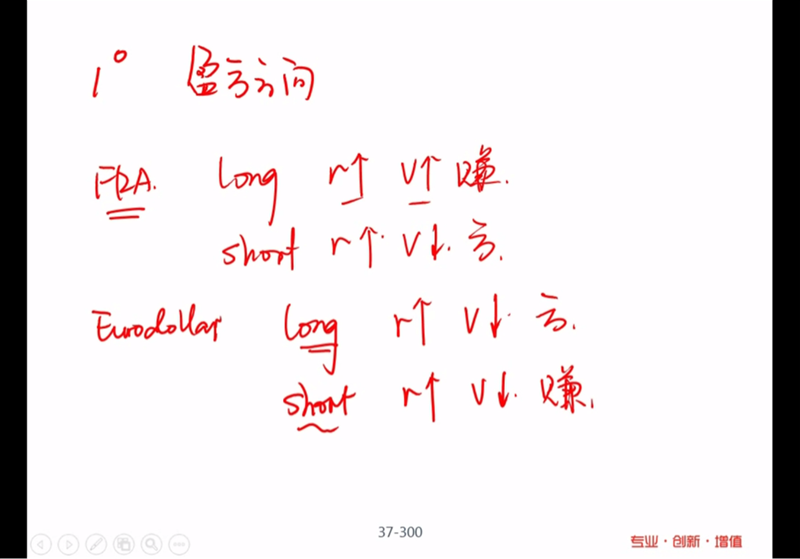 1° 盈亏方向
FRA. long r↑ V↑ 赚.
short r↑. V↓. 亏.
Eurodollar long r↑ V↓. 亏.
short r↑ V↓. 赚.
37-300
专业·创新·增值